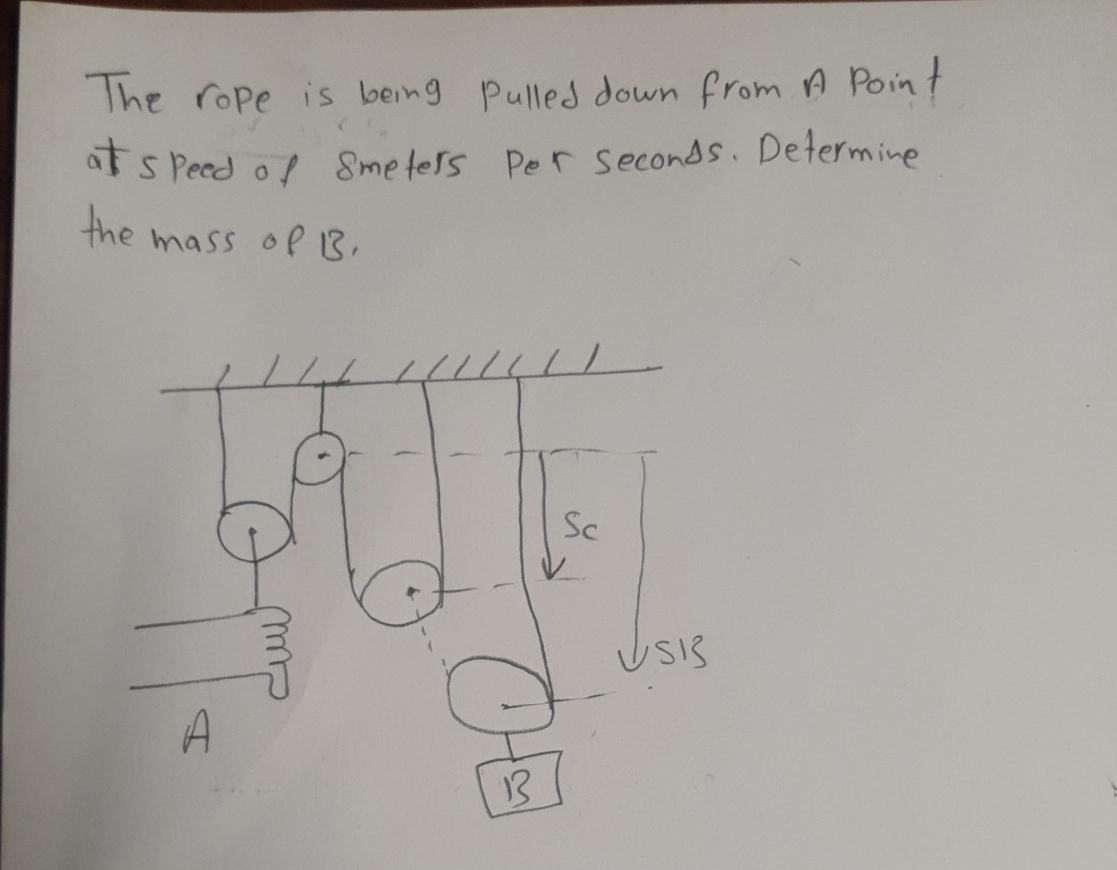 The rope is being pulled down from A point
at speed of 8meters per seconds. Determine
the mass of B.
Sc
SB
A
B